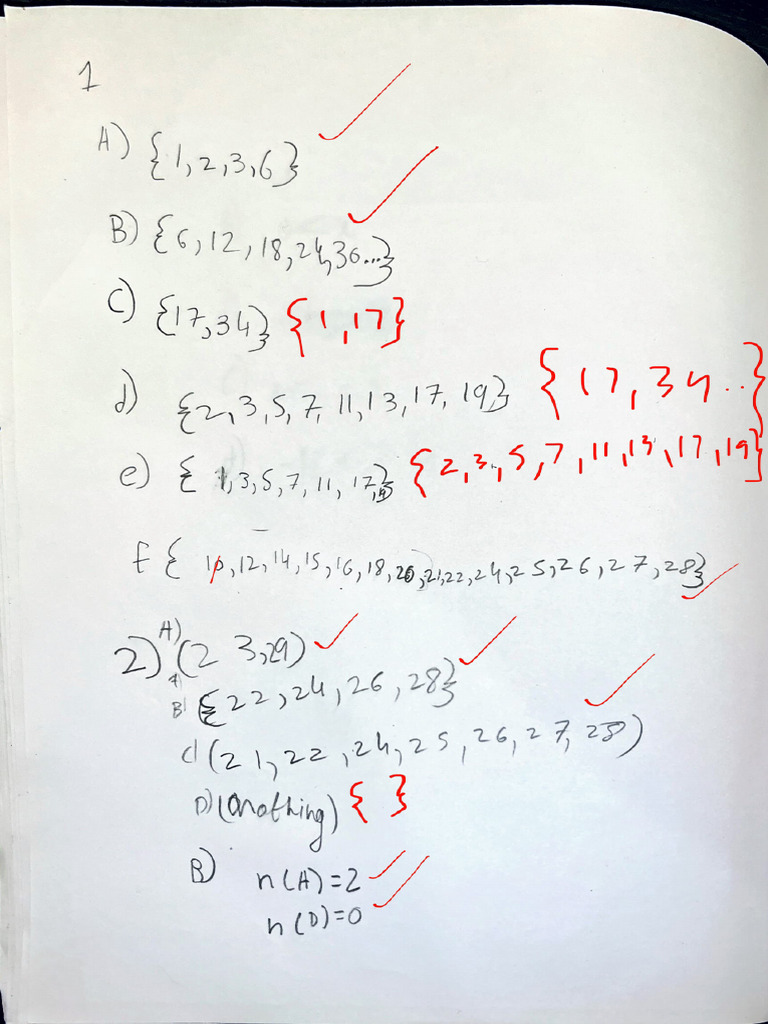 1
A) {1,2,3,6}
B) {6,12,18,24,30...}
C) {17,34} {1,17}
d) {2,3,5,7,11,13,17,19} {17,34..}
e) { 1,3,5,7,11,17,19} {2,3,5,7,11,13,17,19}
f { 10,12,14,15,16,18,20,21,22,24,25,26,27,28}
2) A) (23,29)
B) {22,24,26,28}
C (21,22,24,25,26,27,28)
D) (nothing) { }
B) n(A)=2
n(D)=0